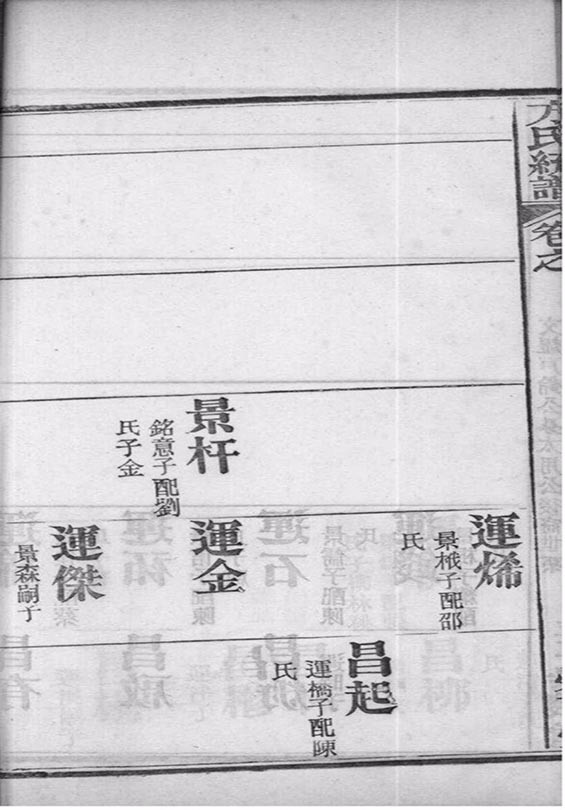 方氏統譜
卷之
運烯
景棫子配邵
氏
昌起
運橋子配陳
氏
景杆
銘意子配劉
氏子金
運金
運傑
景森嗣子